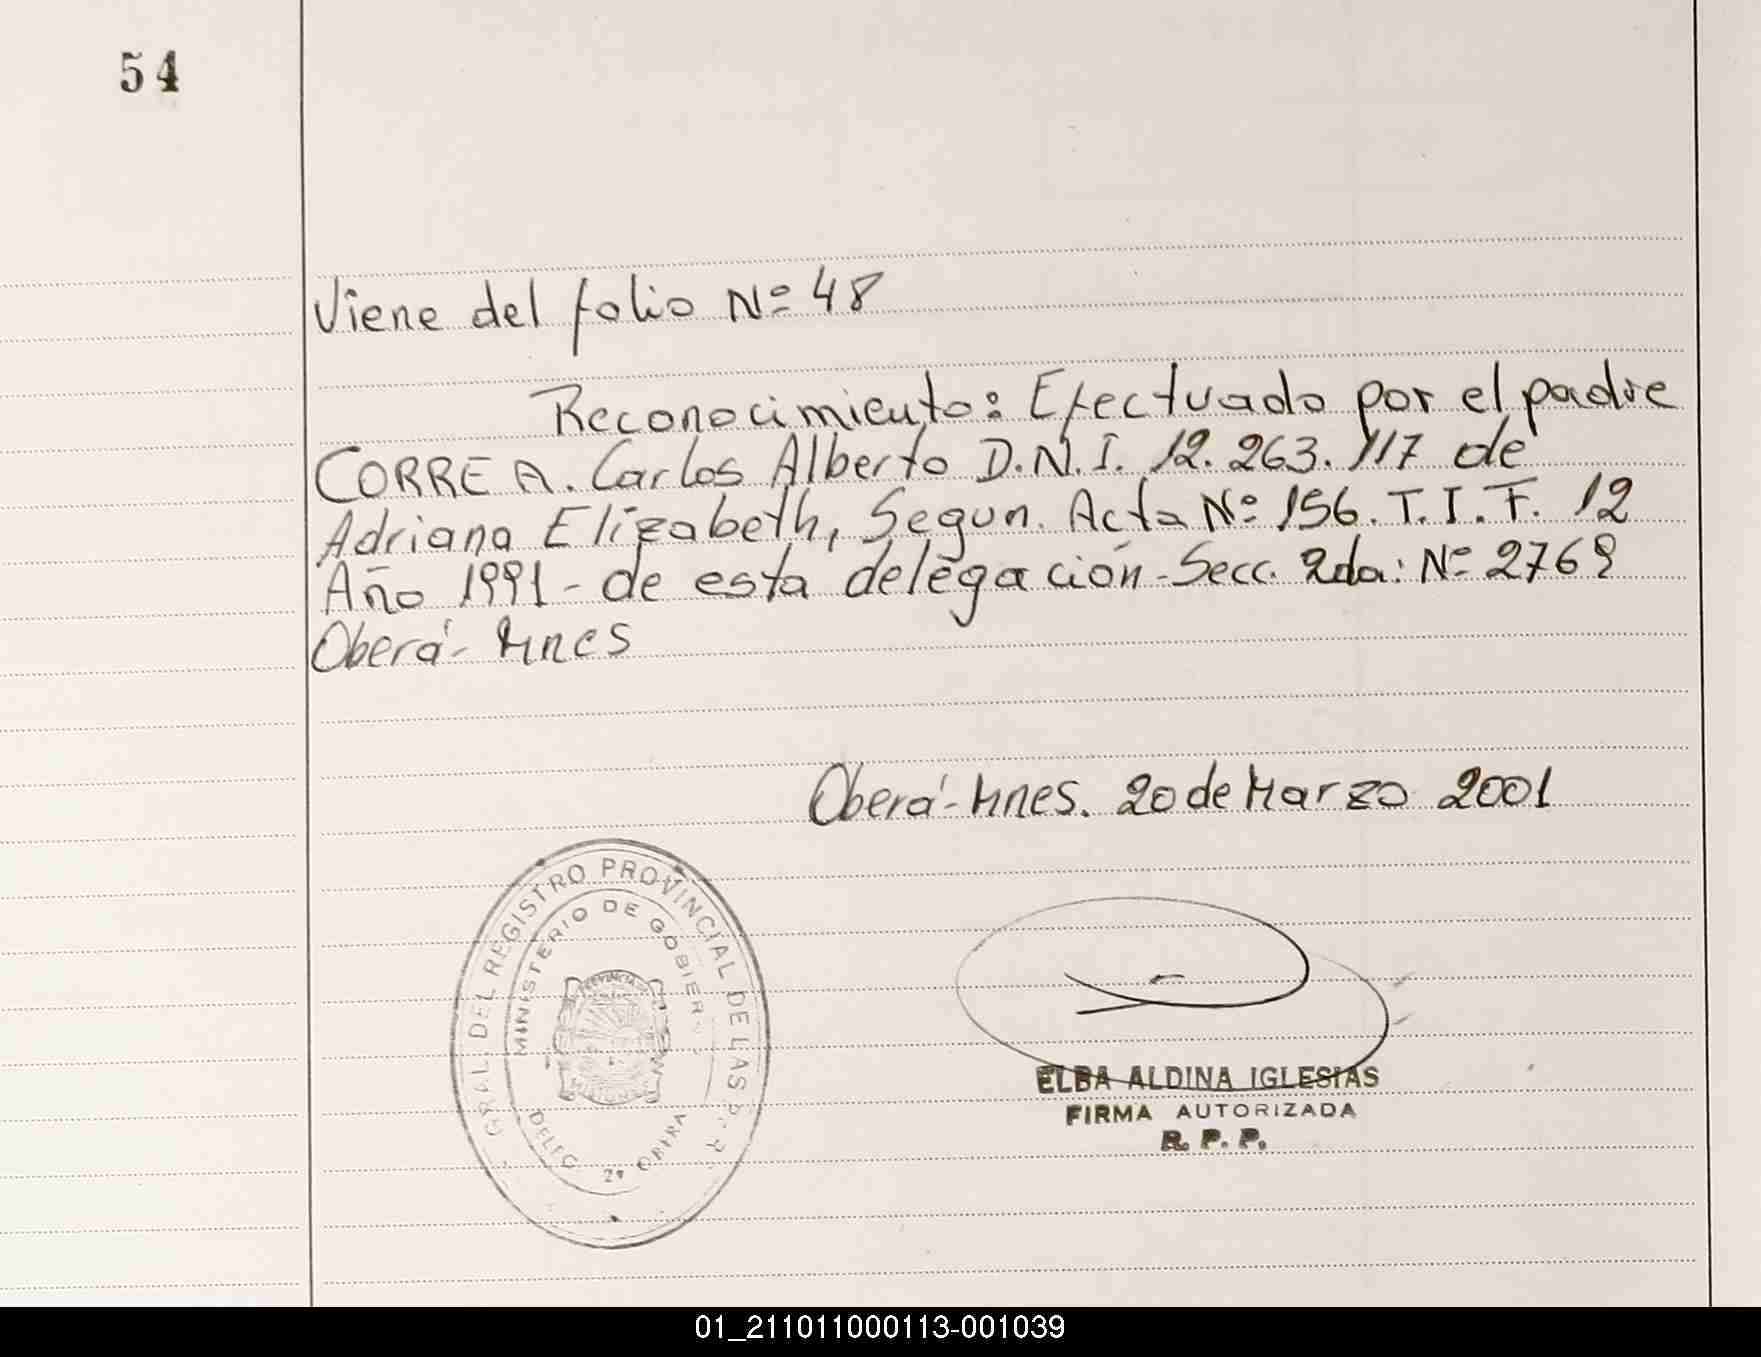 54
Viene del folio Nº 48
Reconocimiento: Efectuado por el padre
CORREA. Carlos Alberto D.N.I. 12.263.117 de
Adriana Elizabeth, Segun. Acta Nº 156. T.I.F. 12
Año 1991 - de esta delegación - Secc. 2da: Nº 2768
Oberá - Mnes
Oberá - Mnes. 20 de Marzo 2001
GRAL. DEL REGISTRO PROVINCIAL DE LAS P. P.
MINISTERIO DE GOBIER
DELEG 2ª OBERA
ELBA ALDINA IGLESIAS
FIRMA AUTORIZADA
R. P. P.
01_211011000113-001039